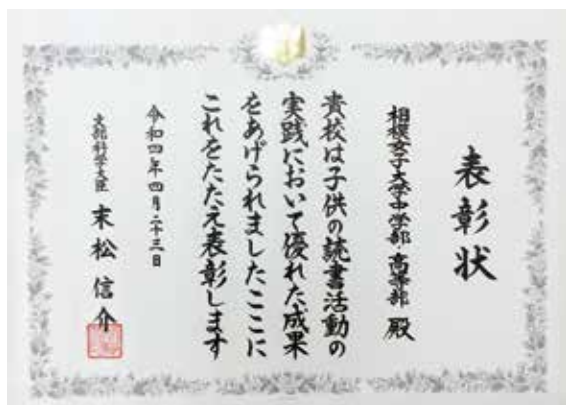 表彰状
相模女子大学中学部 高等部 殿
貴校は子供の読書活動の
実践において優れた成果
をあげられましたここに
これをたたえ表彰します
令和四年四月二十三日
文部科学大臣 末松信介